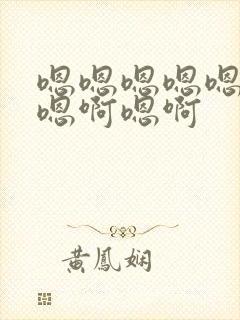 嗯嗯嗯嗯嗯
嗯啊嗯啊
黄鳳娴